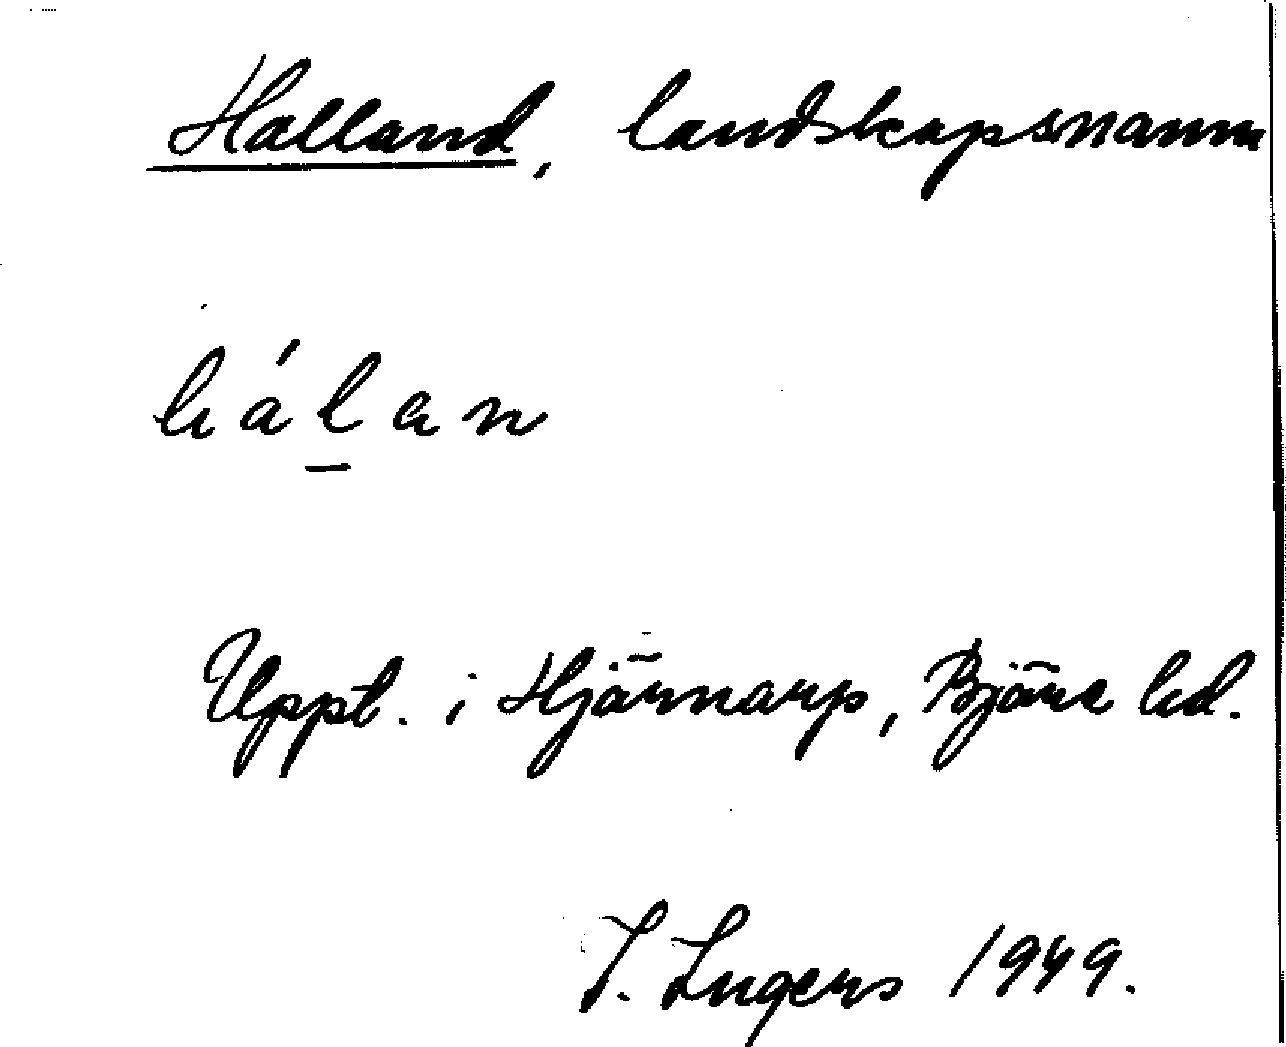 Halland, landskapsnamn
hálan
Uppt. i Hjärnarp, Bjäre hd.
I. Ingers 1949.